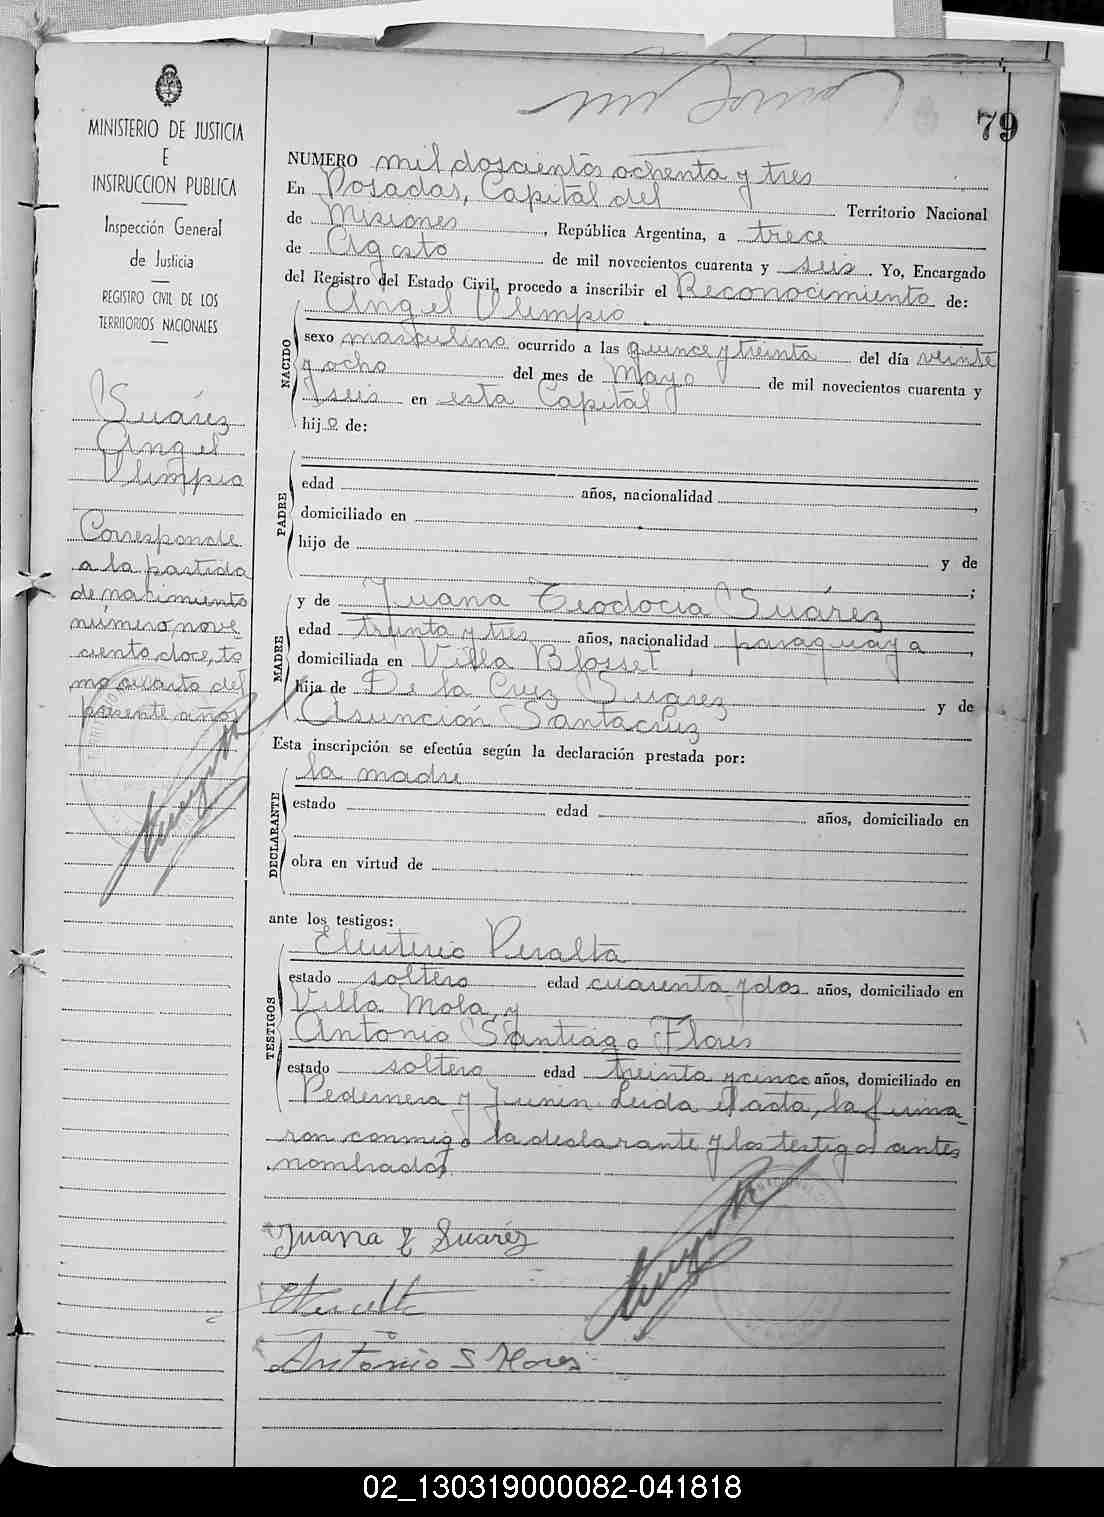 79
MINISTERIO DE JUSTICIA
E
INSTRUCCION PUBLICA
Inspección General
de Justicia
REGISTRO CIVIL DE LOS
TERRITORIOS NACIONALES
Suárez
Angel
Olimpio
Corresponde
a la partida
de nacimiento
número nove
ciento doce, to
mo cuarto del
presente año
NUMERO mil doscientos ochenta y tres
En Posadas, Capital del Territorio Nacional
de Misiones, República Argentina, a trece
de Agosto de mil novecientos cuarenta y seis. Yo, Encargado
del Registro del Estado Civil, procedo a inscribir el Reconocimiento de:
NACIDO
Angel Olimpio.
sexo masculino ocurrido a las quince y treinta del día veinte
y ocho del mes de Mayo de mil novecientos cuarenta y
seis en esta Capital
hijo de:
PADRE
edad años, nacionalidad ,
domiciliado en
hijo de y de
;
MADRE
y de Juana Teodocia Suárez
edad treinta y tres años, nacionalidad paraguaya,
domiciliada en Villa Blosset,
hija de De la Cruz Suarez y de
Asunción Santacruz
Esta inscripción se efectúa según la declaración prestada por:
DECLARANTE
la madre
estado edad años, domiciliado en
obra en virtud de
ante los testigos:
TESTIGOS
Eleuterio Peralta
estado soltero edad cuarenta y dos años, domiciliado en
Villa Mola, y
Antonio Santiago Flores
estado soltero edad treinta y cinco años, domiciliado en
Pedernera y Junin. Leida el acta, la firma-
ron conmigo la declarante y los testigos antes
nombrados
Juana T Suaréz
Antonio S Flores
02_130319000082-041818